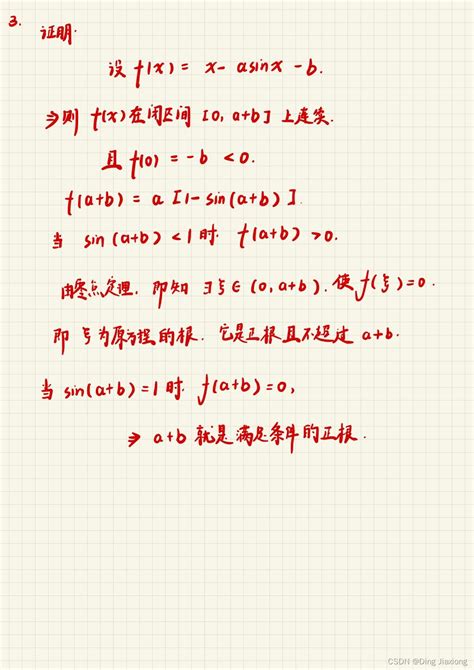 3.
证明:
设 f(x) = x - asinx - b.
⇒则 f(x)在闭区间 [0, a+b] 上连续.
且 f(0) = -b < 0.
f(a+b) = a [1- sin(a+b)].
当 sin(a+b) < 1 时. f(a+b) > 0.
由零点定理. 即知 ∃ξ∈(0, a+b). 使 f(ξ)=0.
即 ξ为原方程的根. 它是正根且不超过 a+b.
当 sin(a+b)=1 时. f(a+b)=0,
⇒ a+b 就是满足条件的正根.
CSDN @Ding Jiaxiong